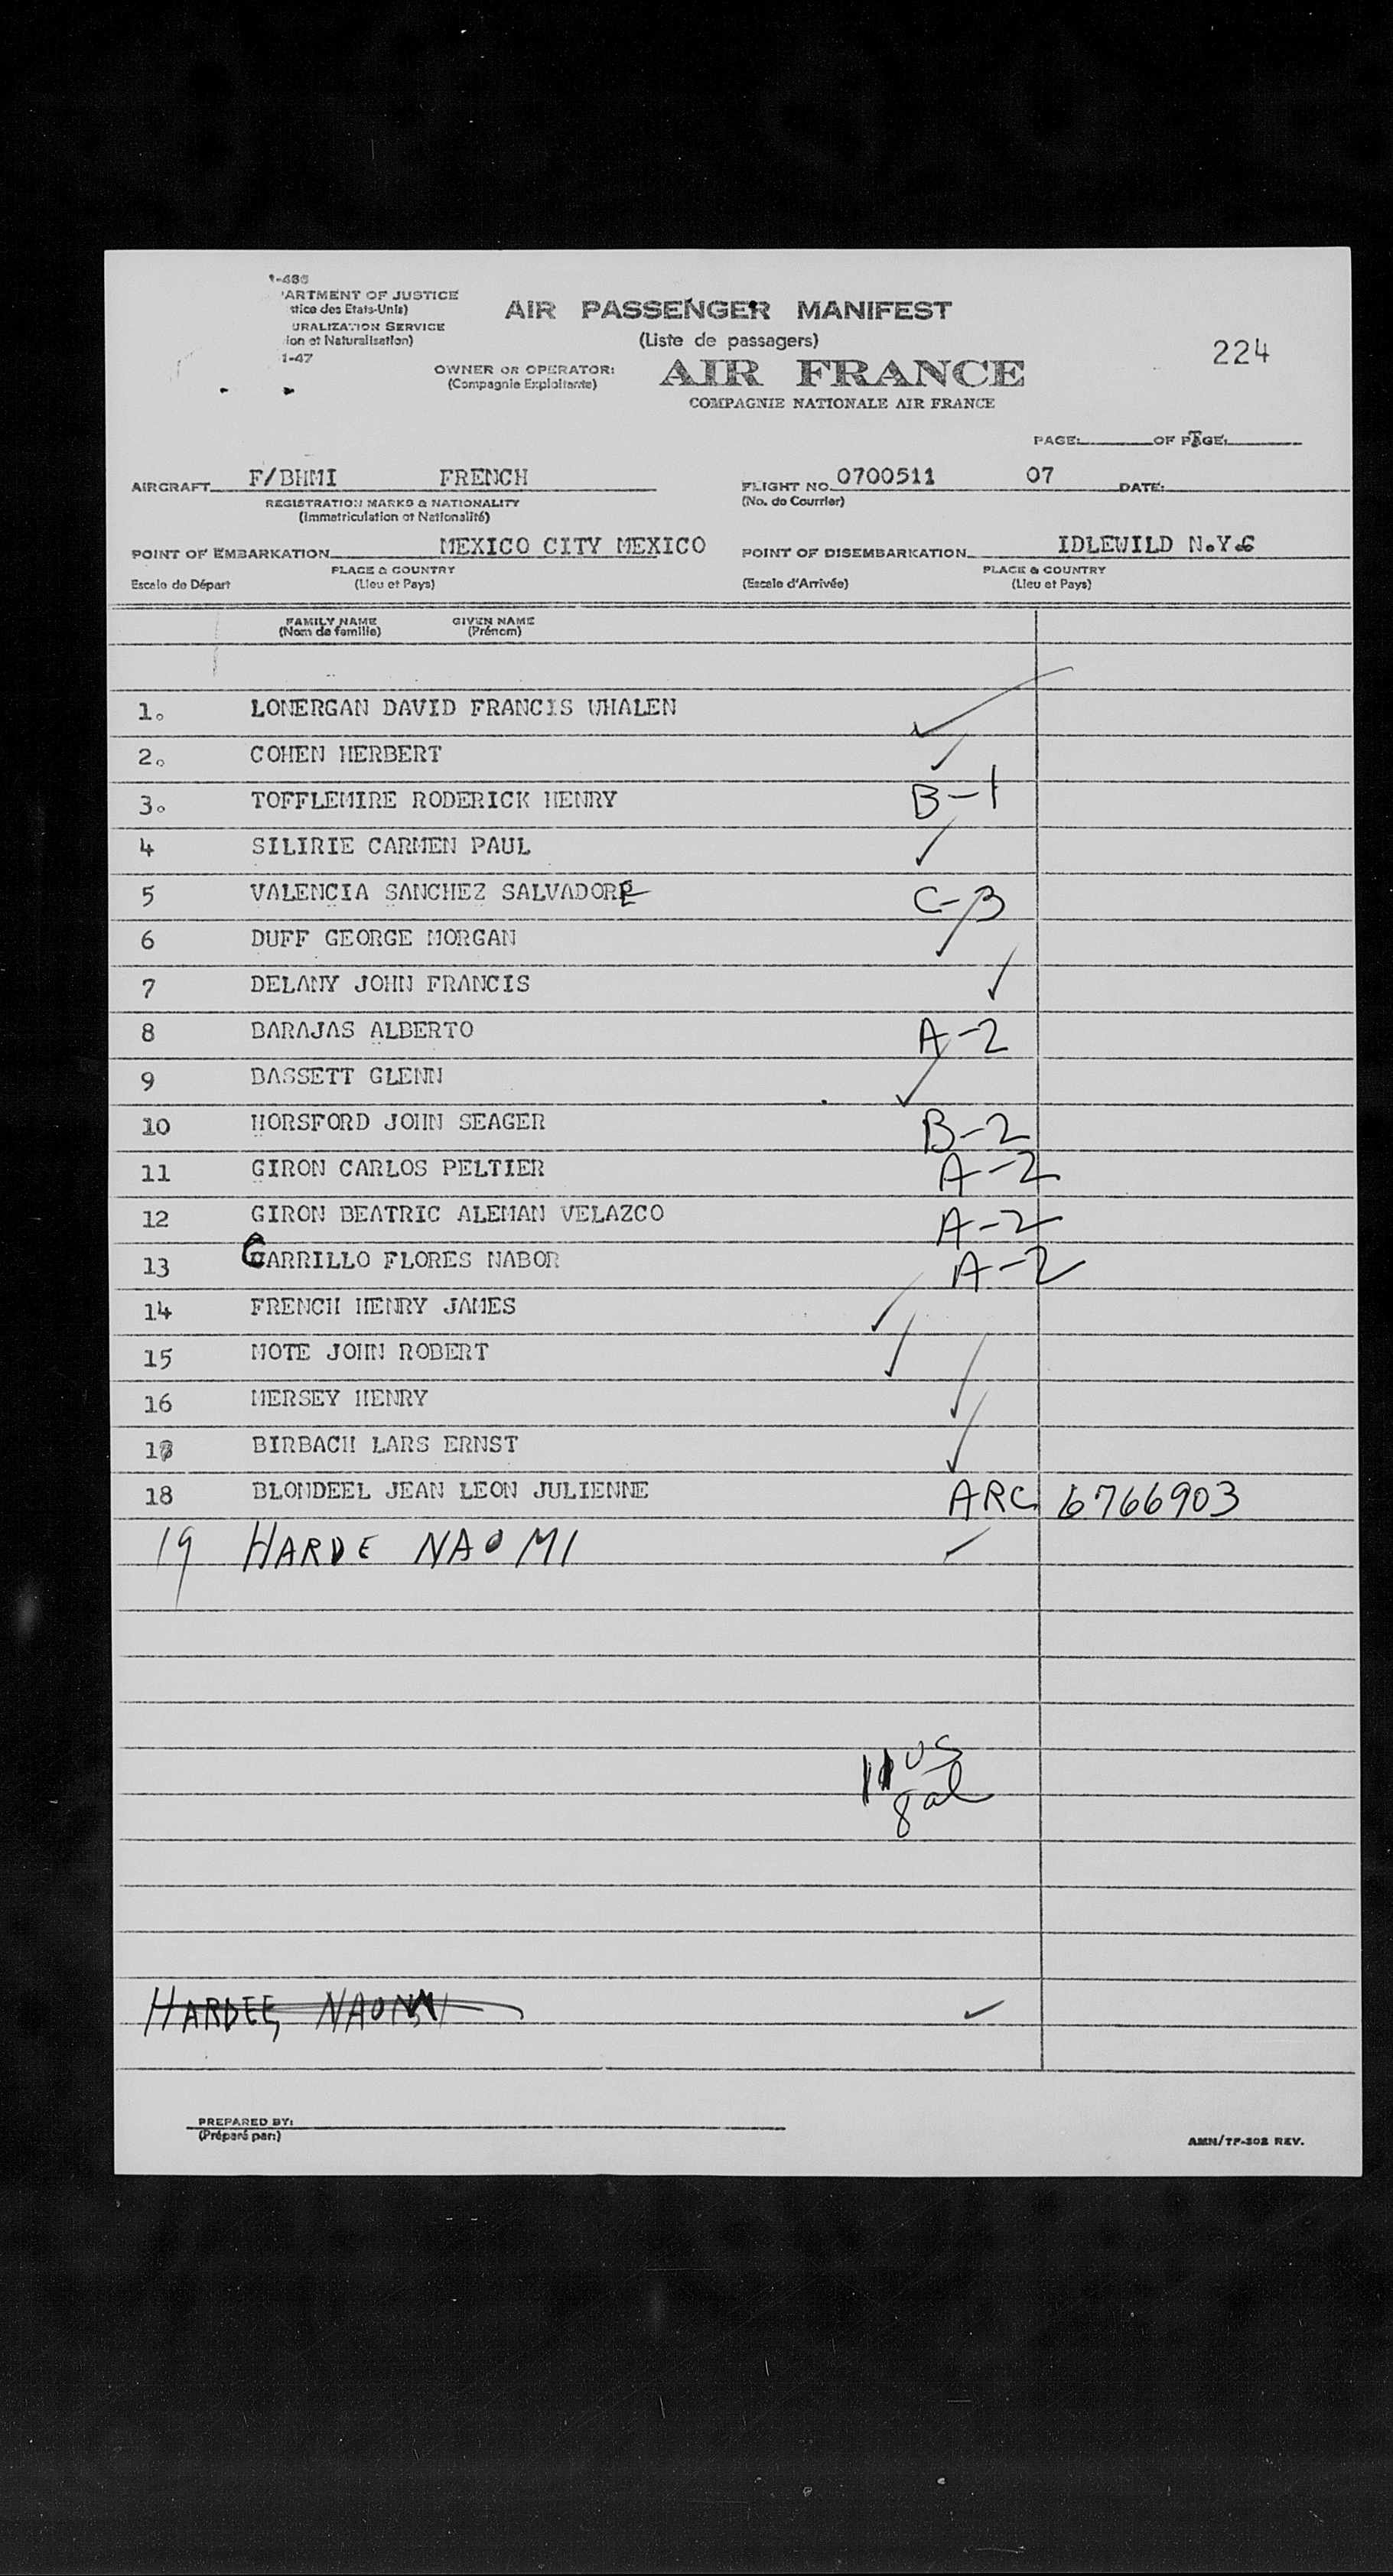 1-466
ARTMENT OF JUSTICE
stice des Etats-Unis)
URALIZATION SERVICE
ion et Naturalisation)
1-47
AIR PASSENGER MANIFEST
(Liste de passagers)
224
OWNER OR OPERATOR:
(Compagnie Exploitante)
AIR FRANCE
COMPAGNIE NATIONALE AIR FRANCE
PAGE: OF PAGE:
AIRCRAFT F/BHMI FRENCH FLIGHT NO 0700511 07 DATE:
REGISTRATION MARKS & NATIONALITY (No. de Courrier)
(Immatriculation et Nationalité)
POINT OF EMBARKATION MEXICO CITY MEXICO POINT OF DISEMBARKATION IDLEWILD N.Y.C
PLACE & COUNTRY PLACE & COUNTRY
Escale de Départ (Lieu et Pays) (Escale d'Arrivée) (Lieu et Pays)
FAMILY NAME GIVEN NAME
(Nom de famille) (Prénom)
1. LONERGAN DAVID FRANCIS WHALEN ✓
2. COHEN HERBERT ✓
3. TOFFLEMIRE RODERICK HENRY B-1
4 SILIRIE CARMEN PAUL ✓
5 VALENCIA SANCHEZ SALVADORE C-B
6 DUFF GEORGE MORGAN ✓
7 DELANY JOHN FRANCIS ✓
8 BARAJAS ALBERTO A-2
9 BASSETT GLENN ✓
10 HORSFORD JOHN SEAGER B-2
11 GIRON CARLOS PELTIER A-2
12 GIRON BEATRIC ALEMAN VELAZCO A-2
13 CARRILLO FLORES NABOR A-2
14 FRENCH HENRY JAMES ✓
15 NOTE JOHN ROBERT ✓
16 MERSEY HENRY ✓
17 BIRBACH LARS ERNST ✓
18 BLONDEEL JEAN LEON JULIENNE ARC 6766903
19 HARDE NAOMI ✓
11 US
8 al
HARDEE, NAOMI ✓
PREPARED BY:
(Préparé par:)
AMN/TP-302 REV.